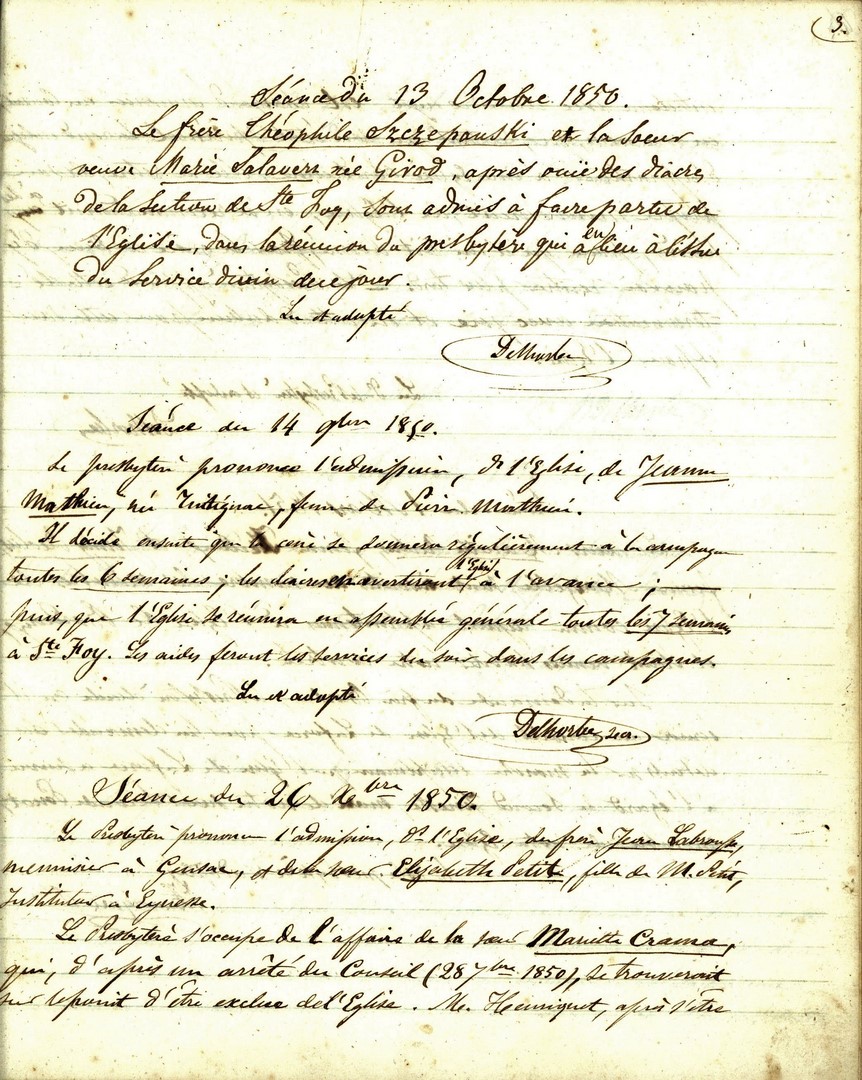 3.
Séance du 13 Octobre 1850.
Le frère Théophile Szczepanski et la Soeur
veuve Marie Salavert née Girod, après ouïe des diacres
de la Section de Ste Foy, sont admis à faire partie de
l'Eglise, dans la réunion du presbytère qui a eu lieu à l'issue
du Service divin de ce jour.
Lu et adopté
Delhorbe
Séance du 14 9bre 1850.
Le presbytère prononce l'admission, ds l'Eglise, de Jeanne
Mathieu, née, femme de Pierre Mathieu.
Il décide ensuite que la cène se donnera régulièrement à la campagne
toutes les 6 semaines; les diacres en avertiront l'Eglise à l'avance;
puis, que l'Eglise se réunira en assemblée générale toutes les 7 semaines
à Ste Foy. Les aides feront les services du soir dans les campagnes.
Lu et adopté
Delhorbe secr.
Séance du 26 Xbre 1850.
Le Presbytère prononce l'admission, ds l'Eglise, du frère Jean Labrousse,
menuisier à Gensac, et de la soeur Elizabeth Petit, fille de M. Petit,
Instituteur à Eynesse.
Le Presbytère s'occupe de l'affaire de la soeur Mariette Crama,
qui, d'après un arrêté du Conseil (28 7bre 1850), se trouverait
sur le point d'être exclue de l'Eglise. Mr. Henriquet, après s'être